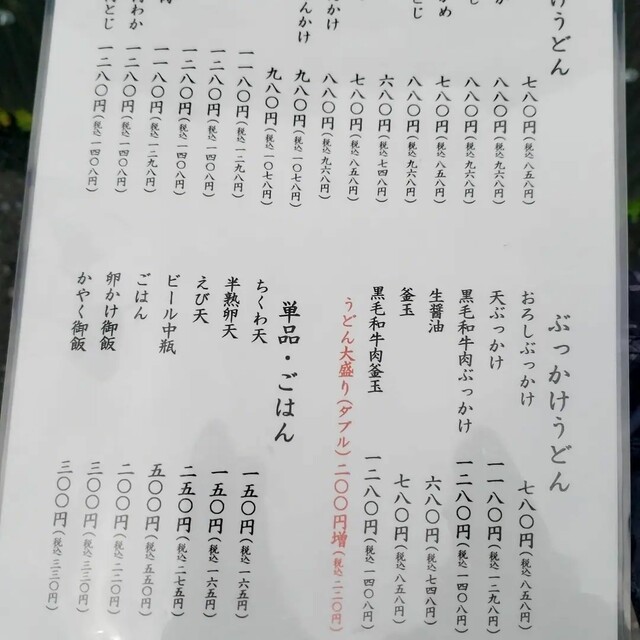 けうどん
七八〇円(税込 八五八円)
八八〇円(税込 九六八円)
八八〇円(税込 九六八円)
七八〇円(税込 八五八円)
とじ 八八〇円(税込 九六八円)
六八〇円(税込 七四八円)
七八〇円(税込 八五八円)
かけ 八八〇円(税込 九六八円)
んかけ 九八〇円(税込 一〇七八円)
九八〇円(税込 一〇七八円)
一一八〇円(税込 一二九八円)
一二八〇円(税込 一四〇八円)
一二八〇円(税込 一四〇八円)
一一八〇円(税込 一二九八円)
わか 一二八〇円(税込 一四〇八円)
とじ 一二八〇円(税込 一四〇八円)
ぶっかけうどん
おろしぶっかけ 七八〇円(税込 八五八円)
天ぶっかけ 一一八〇円(税込 一二九八円)
黒毛和牛肉ぶっかけ 一二八〇円(税込 一四〇八円)
生醤油 六八〇円(税込 七四八円)
釜玉 七八〇円(税込 八五八円)
黒毛和牛肉釜玉 一二八〇円(税込 一四〇八円)
うどん大盛り(ダブル)二〇〇円増(税込 二二〇円)
単品・ごはん
ちくわ天 一五〇円(税込 一六五円)
半熟卵天 一五〇円(税込 一六五円)
えび天 二五〇円(税込 二七五円)
ビール中瓶 五〇〇円(税込 五五〇円)
ごはん 二〇〇円(税込 二二〇円)
卵かけ御飯 三〇〇円(税込 三三〇円)
かやく御飯 三〇〇円(税込 三三〇円)